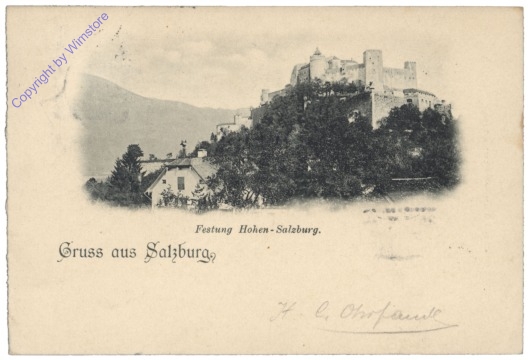 Copyright by Wimstore
Festung Hohen-Salzburg.
Gruss aus Salzburg,